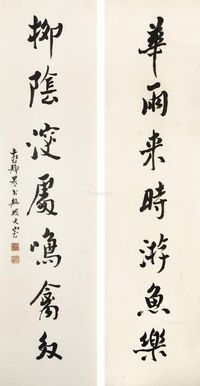 華雨来時游魚樂
柳陰深處鳴禽多